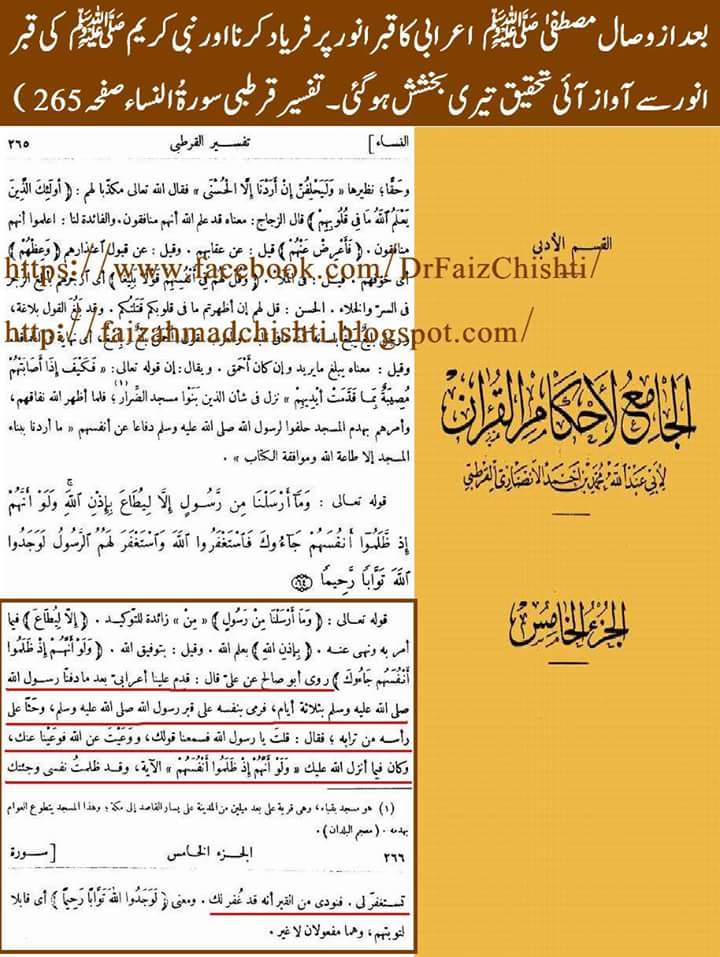 بعد از وصال مصطفیٰ ﷺ اعرابی کا قبر انور پر فریاد کرنا اور نبی کریم ﷺ کی قبر
انور سے آواز آئی تحقیق تیری بخشش ہو گئی۔ تفسیر قرطبی سورۃ النساء صفحہ 265 )
النساء] تفسير القرطبى ٢٦٥
وحقًّا؛ نظيرها « وَلَيَحْلِفُنَّ إِنْ أَرَدْنَا إِلَّا الْحُسْنَى » فقال الله تعالى مكذّبا لهم : ﴿ أُولَئِكَ الَّذِينَ
يَعْلَمُ اللَّهُ مَا فِى قُلُوبِهِمْ ﴾ قال الزجاج: معناه قد علم الله أنهم منافقون. والفائدة لنا : اعلموا أنهم
منافقون . ﴿ فَأَعْرِضْ عَنْهُمْ ﴾ قيل : عن عقابهم . وقيل : عن قبول اعتذارهم ﴿ وَعِظْهُمْ ﴾
https://www.facebook.com/DrFaizChishti/
فى السرّ والخلاء . الحسن : قل لهم إن أظهرتم ما فى قلوبكم قتلتكم . وقد بلُغ القول بلاغة،
http://faizahmadchishti.blogspot.com/
وقيل : معناه يبلغ مايريد وإن كان أحمق . ويقال: إن قوله تعالى: « فَكَيْفَ إِذَا أَصَابَتْهُمْ
مُصِيبَةٌ بِمَا قَدَّمَتْ أَيْدِيهِمْ » نزل فى شأن الذين بَنَوْا مسجد الضِّرار(١)؛ فلما أظهر الله نفاقهم،
وأمرهم بهدم المسجد حلفوا لرسول الله صلى الله عليه وسلم دفاعا عن أنفسهم « ما أردنا ببناء
المسجد إلا طاعة الله وموافقة الكتاب » .
قوله تعالى : وَمَآ أَرْسَلْنَا مِن رَّسُولٍ إِلَّا لِيُطَاعَ بِإِذْنِ ٱللَّهِ وَلَوْ أَنَّهُمْ
إِذ ظَّلَمُوٓا أَنفُسَهُمْ جَآءُوكَ فَٱسْتَغْفَرُوا ٱللَّهَ وَٱسْتَغْفَرَ لَهُمُ ٱلرَّسُولُ لَوَجَدُوا
ٱللَّهَ تَوَّابًا رَّحِيمًا ٦٤
قوله تعالى : ﴿ وَمَا أَرْسَلْنَا مِنْ رَسُولٍ ﴾ « مِنْ » زائدة للتوكيد . ﴿ إِلَّا لِيُطَاعَ ﴾ فيما
أمر به ونهى عنه . ﴿ بِإِذْنِ اللَّهِ ﴾ بعلم الله . وقيل : بتوفيق الله . ﴿ وَلَوْ أَنَّهُمْ إِذْ ظَلَمُوا
أَنْفُسَهُمْ جَاءُوكَ ﴾ روى أبو صالح عن علىّ قال : قدم علينا أعرابىّ بعد ما دفنّا رسول الله
صلى الله عليه وسلم بثلاثة أيام، فرمى بنفسه على قبر رسول الله صلى الله عليه وسلم، وحثَا على
رأسه من ترابه ؛ فقال : قلتَ يا رسول الله فسمعنا قولك، ووَعَيْتَ عن الله فوعَيْنا عنك،
وكان فيما أنزل الله عليك « وَلَوْ أَنَّهُمْ إِذْ ظَلَمُوا أَنْفُسَهُمْ » الآية، وقد ظلمتُ نفسى وجئتك
(١) هو مسجد بقباء، وهى قرية على بعد ميلين من المدينة على يسار القاصد إلى مكة؛ وهذا المسجد يتطوع العوام
بهدمه . (معجم البلدان) .
٢٦٦ الجزء الخامس [سورة
تستغفر لى . فنودى من القبر أنه قد غُفر لك . ومعنى ﴿ لَوَجَدُوا اللَّهَ تَوَّابًا رَحِيمًا ﴾ أى قابلا
لتوبتهم، وهما مفعولان لا غير .
القسم الأدبى
الجامع لأحكام القرآن
لأبى عبد الله محمد بن أحمد الأنصارى القرطبى
الجزء الخامس